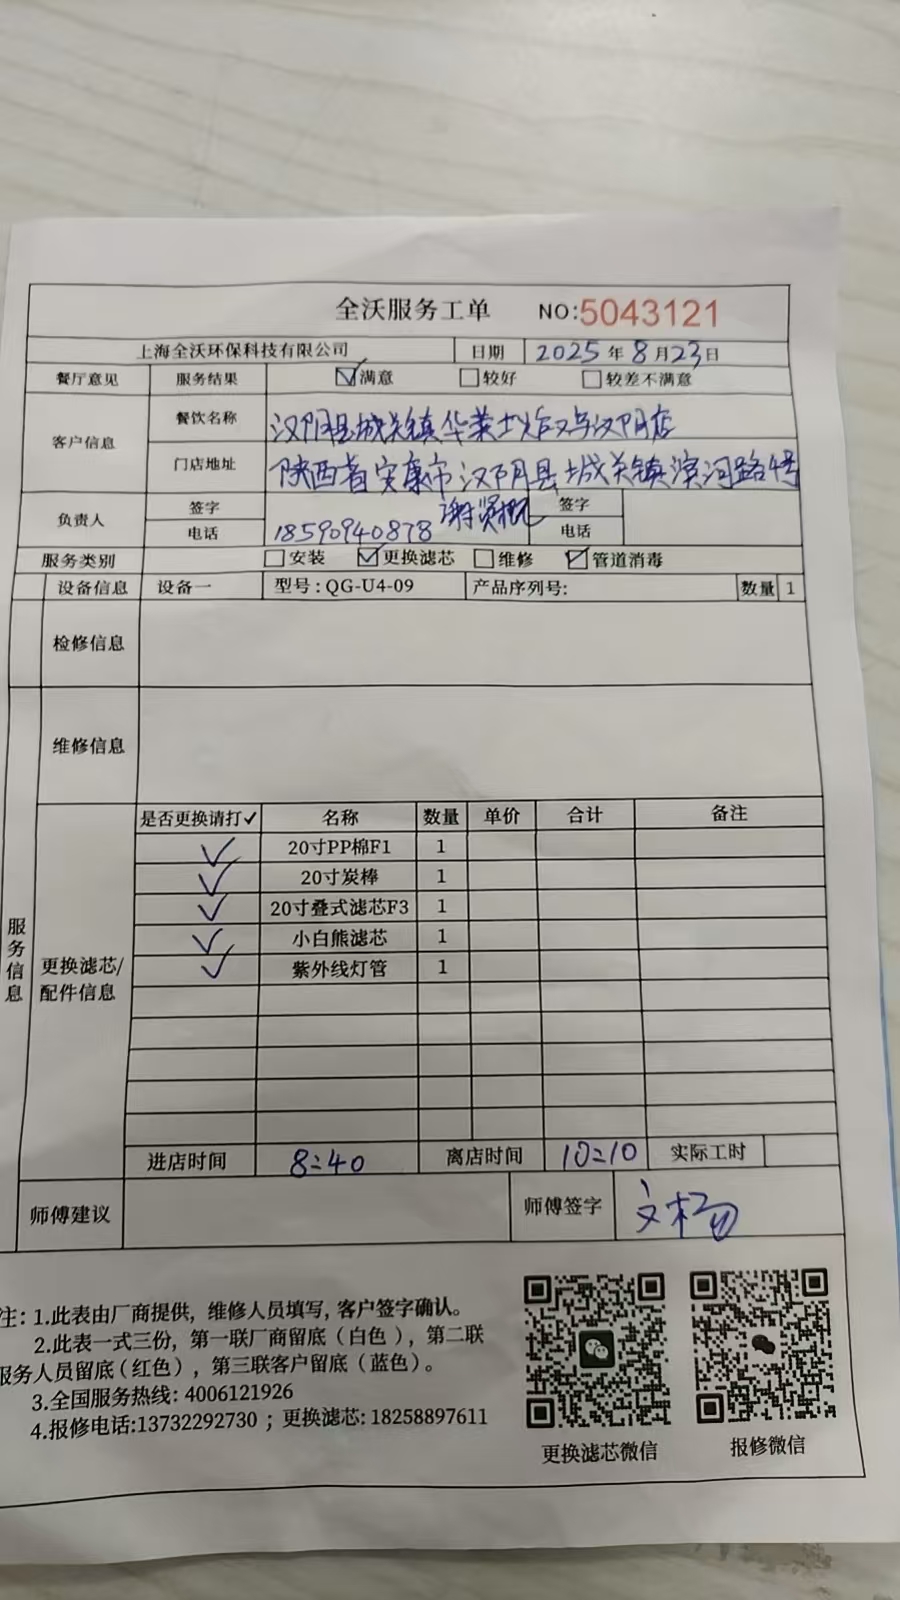 全沃服务工单 NO:5043121
上海全沃环保科技有限公司 日期 2025年8月23日
餐厅意见 服务结果 ☑满意 □较好 □较差不满意
客户信息 餐饮名称 汉阴县城关镇华莱士炸汉与汉阴店
门店地址 陕西省安康市汉阴县城关镇滨河路4号
负责人 签字 谢贤 签字
电话 18590940878 电话
服务类别 □安装 ☑更换滤芯 □维修 ☑管道消毒
设备信息 设备一 型号:QG-U4-09 产品序列号: 数量 1
检修信息
维修信息
服务信息
更换滤芯/配件信息
是否更换请打✓ 名称 数量 单价 合计 备注
✓ 20寸PP棉F1 1
✓ 20寸炭棒 1
✓ 20寸叠式滤芯F3 1
✓ 小白熊滤芯 1
✓ 紫外线灯管 1
进店时间 8:40 离店时间 10:10 实际工时
师傅建议 师傅签字 文杨
注:1.此表由厂商提供,维修人员填写,客户签字确认。
2.此表一式三份,第一联厂商留底(白色),第二联
服务人员留底(红色),第三联客户留底(蓝色)。
3.全国服务热线:4006121926
4.报修电话:13732292730;更换滤芯:18258897611
更换滤芯微信 报修微信